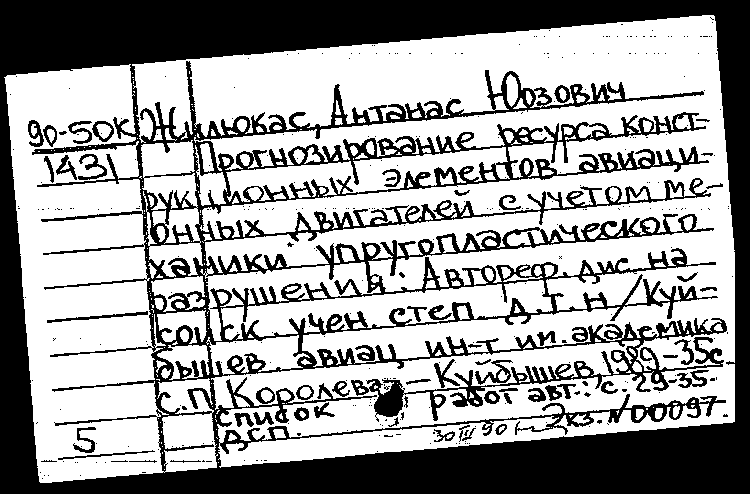 90-50К Жилюкас, Антанас Юозович
1431 Прогнозирование ресурса конст-
рукционных элементов авиаци-
онных двигателей с учетом ме-
ханики упругопластического
разрушения: Автореф. дис. на
соиск. учен. степ. д.т.н / Куй-
бышев. авиац. ин-т им. академика
С.П. Королева. – Куйбышев, 1989 – 35с.
список работ авт.: с. 29-35.
5 дсп. 30 III 90 Экз. N 00097.